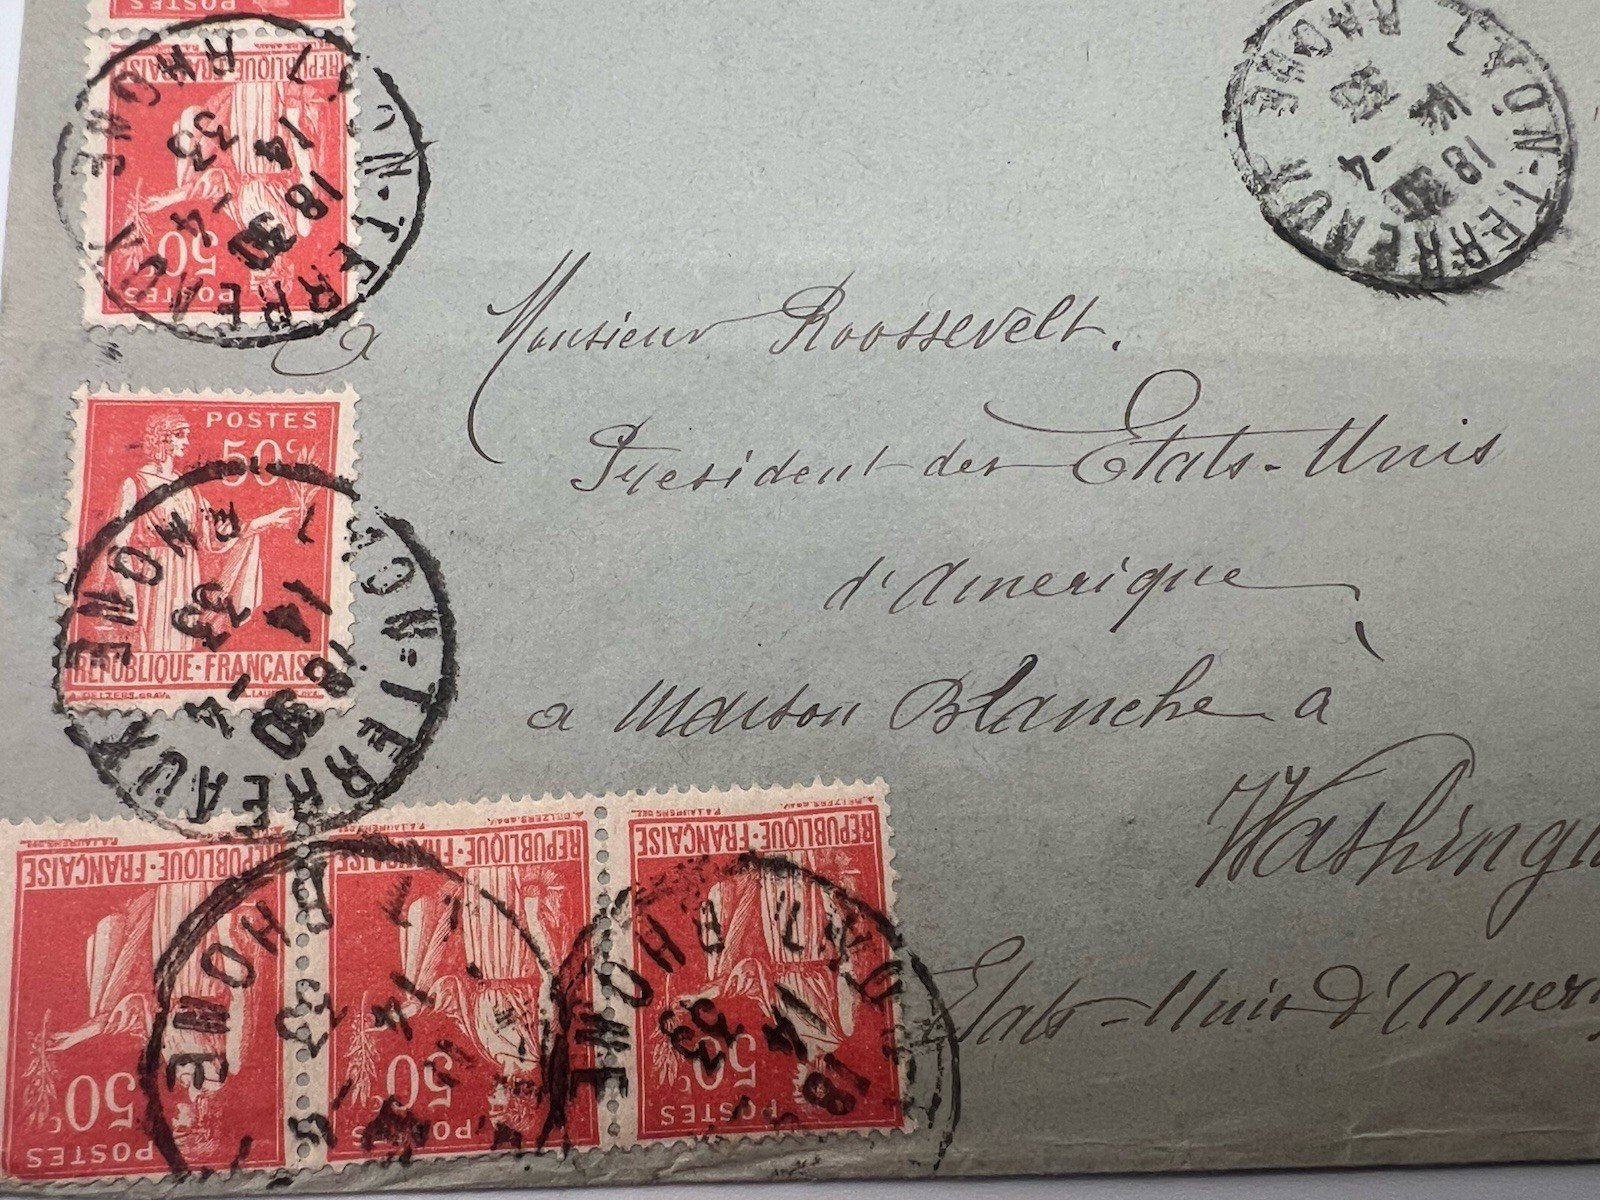 POSTES
REPUBLIQUE·FRANÇAISE
50c
POSTES
LYON-TERREAUX
RHONE
18 30
14 -4
33
LYON-TERREAUX
RHONE
18
14 -4
a Monsieur Roossevelt.
President des Etats-Unis
d'Amerique
a Maison Blanche à
Washing
Etats-Unis d'Amer
POSTES
50c
REPUBLIQUE·FRANÇAISE
LYON-TERREAUX
RHONE
18 30
14 -4
33
REPUBLIQUE·FRANÇAISE
50c
POSTES
REPUBLIQUE·FRANÇAISE
50c
POSTES
REPUBLIQUE·FRANÇAISE
50c
POSTES
RHONE
14
33
LYON
RHONE
18
33